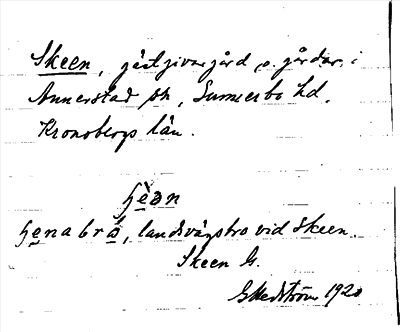 Skeen, gästgivargård o. gårdar i
Annerstad sn, Sunnerbo hd.
Kronobergs län.
hèan
henabrá, landsvägsbro vid Skeen.
Skeen G.
G Hedström 1920